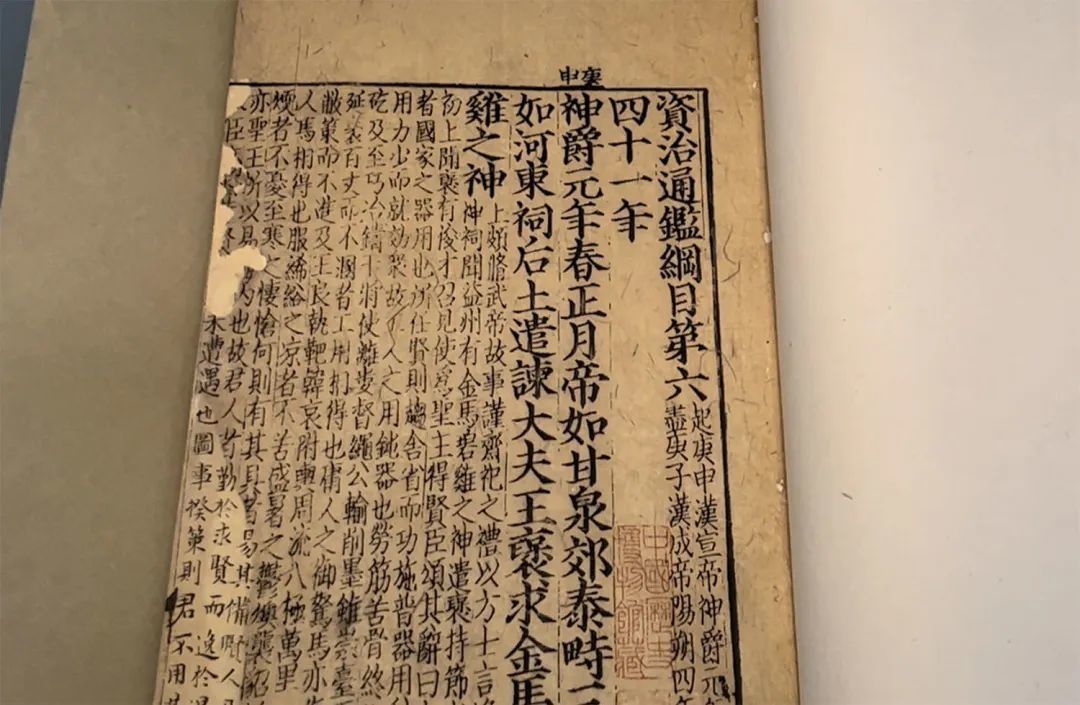 庚申
資治通鑑綱目第六
起庚申漢宣帝神爵元年
盡庚子漢成帝陽朔四年
四十一年
神爵元年春正月帝如甘泉郊泰畤三
如河東祠后土遣諫大夫王褒求金馬
雞之神
上頗脩武帝故事謹齋祀之禮以方士言
神祠聞益州有金馬碧雞之神遣褒持節
初上聞褒有俊才召見使爲聖主得賢臣頌其辭曰
者國家之器用也所任賢則趨舍省而功施普器用
用力少而就効衆故工人之用鈍器也勞筋苦骨終
矻及至巧冶鑄干將使離婁督繩公輸削墨雖崇臺
延袤百丈而不溷者工用相得也庸人之御駑馬亦
敝策而不進及王良執靶韓哀附輿周流八極萬里
人馬相得也服絺綌之凉者不苦盛暑之鬱燠襲貂
煖者不憂至寒之悽愴何則有其具者易其備賢人
亦聖王所以易内也故君人者勤於求賢而逸於得
臣未遭遇也圖事揆策則君不用其